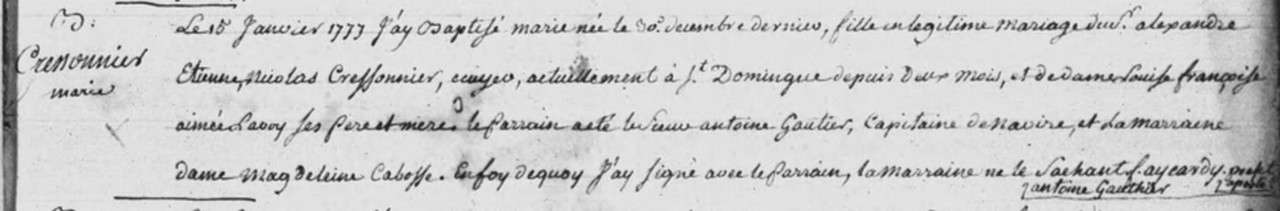 B.
Cressonnier
marie
Le 15 Janvier 1777 J'ay Baptisé marie née le 30. decembre dernier, fille en legitime mariage du Sr. alexandre
Etienne, Nicolas Cressonnier, ecuyer, actuellement à St. Domingue depuis deux mois, et de dame Louise françoise
aimée Savoy ses Pere et mere. le Parrain a eté le Sieur antoine Gautier, Capitaine de Navire, et La marraine
dame Magdeleine Cabosse. En foy de quoy J'ay signé avec le Parrain, la marraine ne le Sachant f. aycardy. prefet
antoine Gauthier apost.